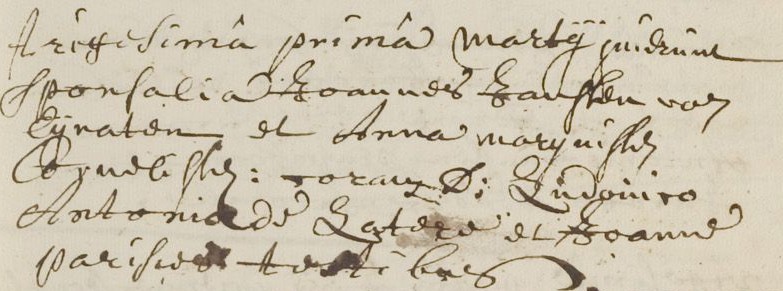 trigesima prima martÿ inierunt
sponsalia Joannes Janssen van
Eÿnaten et Anna marquissen
Cornelissen: coram D: Ludovico
Antonio de Latere et Joanne
parisies testibus